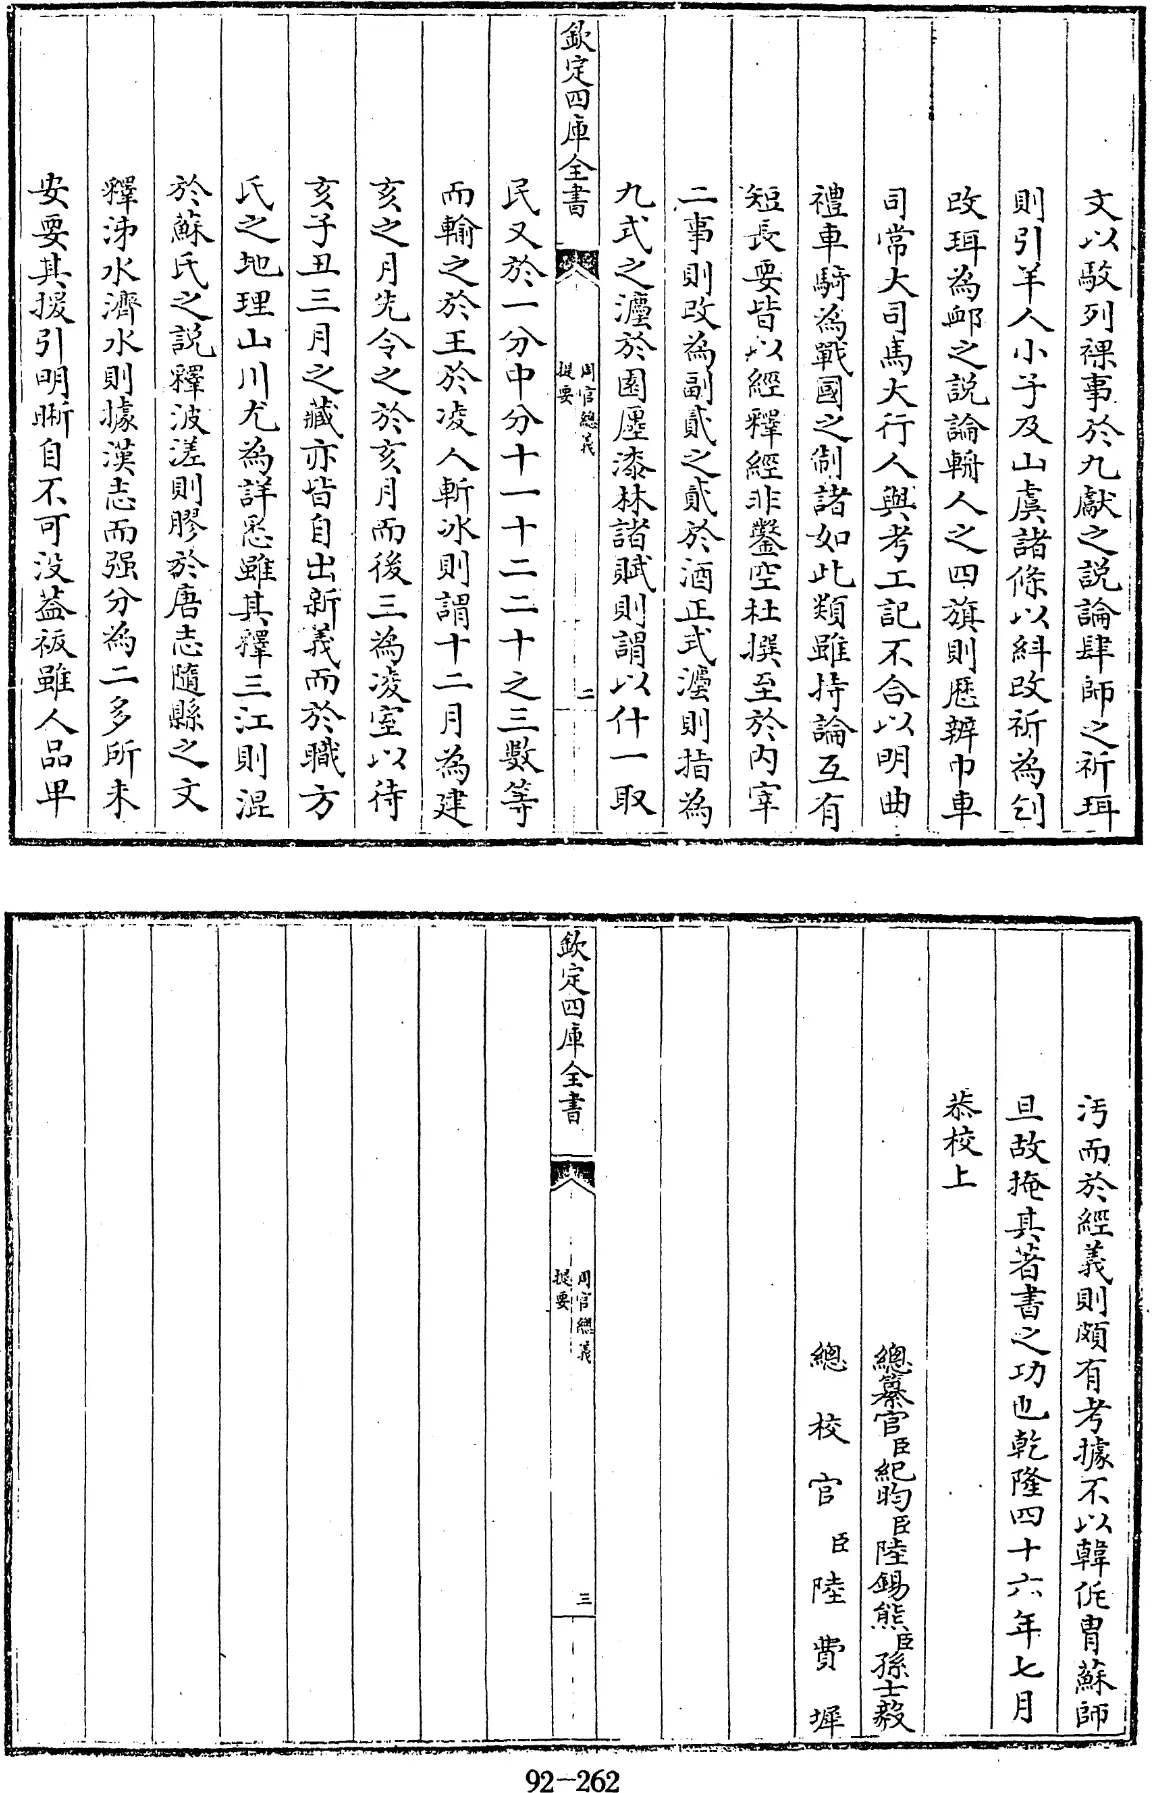 文以駁列祼事於九獻之説論肆師之祈珥
則引羊人小子及山虞諸條以糾改祈為刉
改珥為衈之説論輈人之四旗則歴辨巾車
司常大司馬大行人與考工記不合以明曲
禮車騎為戰國之制諸如此類雖持論互有
短長要皆以經釋經非鑿空杜撰至於内宰
二事則改為副貳之貳於酒正式灋則指為
九式之灋於園廛漆林諸賦則謂以什一取
欽定四庫全書
周官總義
提要
二
民又於一分中分十一十二二十之三數等
而輸之於王於凌人斬冰則謂十二月為建
亥之月先令之於亥月而後三為凌室以待
亥子丑三月之藏亦皆自出新義而於職方
氏之地理山川尤為詳悉雖其釋三江則混
於蘇氏之説釋波溠則膠於唐志隨縣之文
釋沛水濟水則據漢志而强分為二多所未
安要其援引明晰自不可没蓋祓雖人品卑
汚而於經義則頗有考據不以韓侂胄蘇師
旦故掩其著書之功也乾隆四十六年七月
恭校上
總纂官臣紀昀臣陸錫熊臣孫士毅
總校官臣陸費墀
欽定四庫全書
周官總義
提要
三
92-262